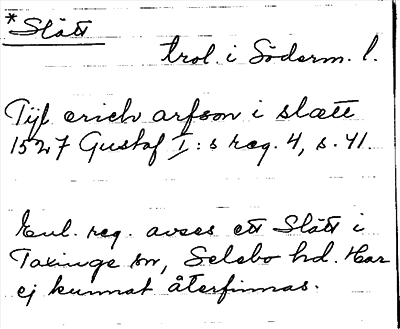 *Slätt
trol. i Söderm. l.
erich arfson i slætt
1527 Gustaf I:s reg. 4, s. 41.
Enl. reg. avses ett Slätt i
Taxinge sn, Selebo hd. Har
ej kunnat återfinnas.